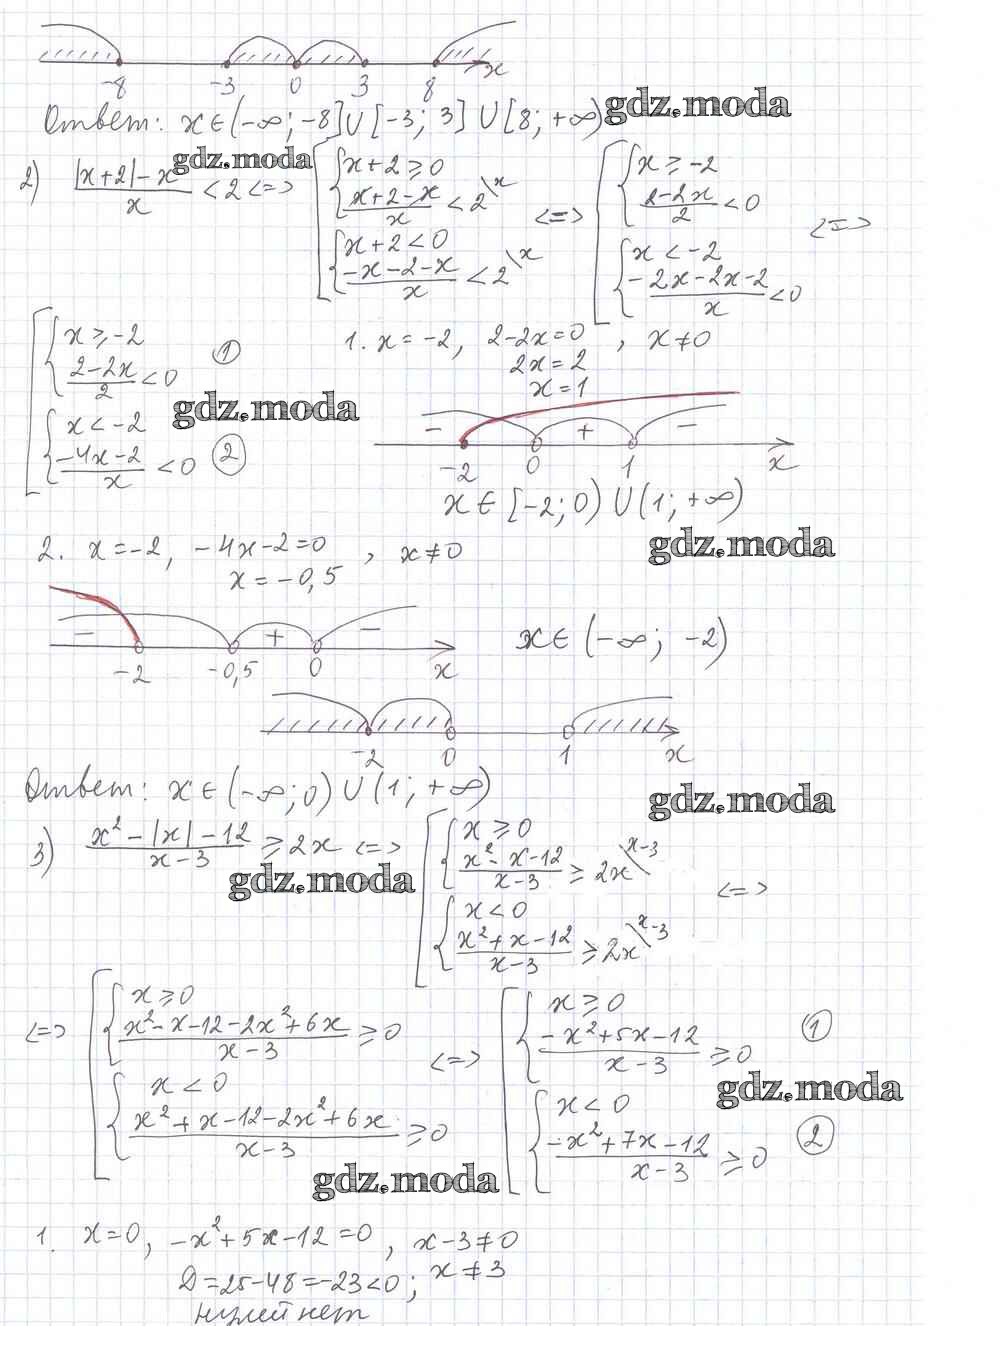 -8 -3 0 3 8 x
Ответ: x∈(-∞; -8]∪[-3; 3]∪[8; +∞)
gdz.moda
gdz.moda
2) |x+2|-x / x < 2 <=> [ { x+2≥0 ; x+2-x / x < 2 \x ; { x+2<0 ; -x-2-x / x < 2 \x <=> [ { x≥-2 ; 2-2x / 2 < 0 ; { x<-2 ; -2x-2x-2 / x < 0 <=>
[ { x≥-2 ; 2-2x / 2 < 0 ① ; { x<-2 ; -4x-2 / x < 0 ②
gdz.moda
1. x=-2, 2-2x=0, x≠0
2x=2
x=1
- + -
-2 0 1 x
x∈[-2; 0)∪(1; +∞)
gdz.moda
2. x=-2, -4x-2=0, x≠0
x=-0,5
- + -
-2 -0,5 0 x
x∈(-∞; -2)
-2 0 1 x
Ответ: x∈(-∞; 0)∪(1; +∞)
gdz.moda
3) x²-|x|-12 / x-3 ≥ 2x <=> [ { x≥0 ; x²-x-12 / x-3 ≥ 2x \x-3 ; { x<0 ; x²+x-12 / x-3 ≥ 2x \x-3 <=>
gdz.moda
<=> [ { x≥0 ; x²-x-12-2x²+6x / x-3 ≥ 0 ; { x<0 ; x²+x-12-2x²+6x / x-3 ≥ 0 <=> [ { x≥0 ; -x²+5x-12 / x-3 ≥ 0 ① ; { x<0 ; -x²+7x-12 / x-3 ≥ 0 ②
gdz.moda
gdz.moda
1. x=0, -x²+5x-12=0, x-3≠0
D=25-48=-23<0; x≠3
нулей нет